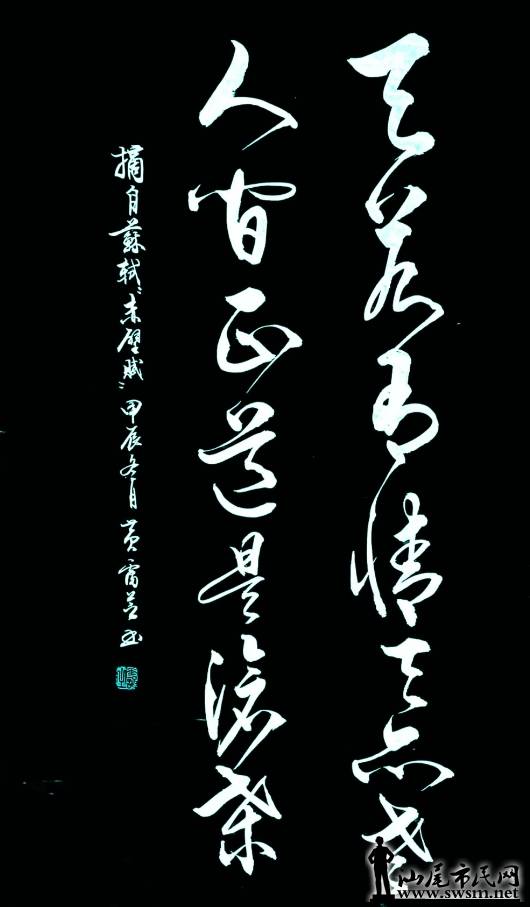 天若有情天亦老
人間正道是滄桑
摘自蘇軾《赤壁賦》甲辰冬月黄
汕尾市民网
www.swsm.net